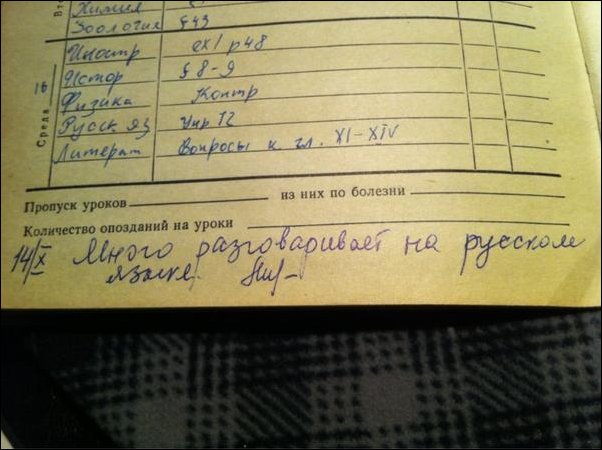 Вт
Химия
Зоология § 43
Иностр ex 1 p 48
Среда 16
Истор § 8-9
Физика Контр
Русск яз Упр 12
Литерат Вопросы к гл. XI-XIV
Пропуск уроков из них по болезни
Количество опозданий на уроки
14/X Много разговаривает на русском
языке.